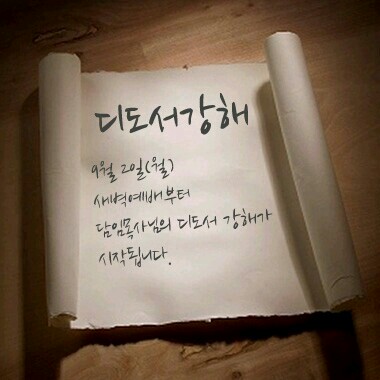 디도서강해
9월 2일(월)
새벽예배부터
담임목사님의 디도서 강해가
시작됩니다.